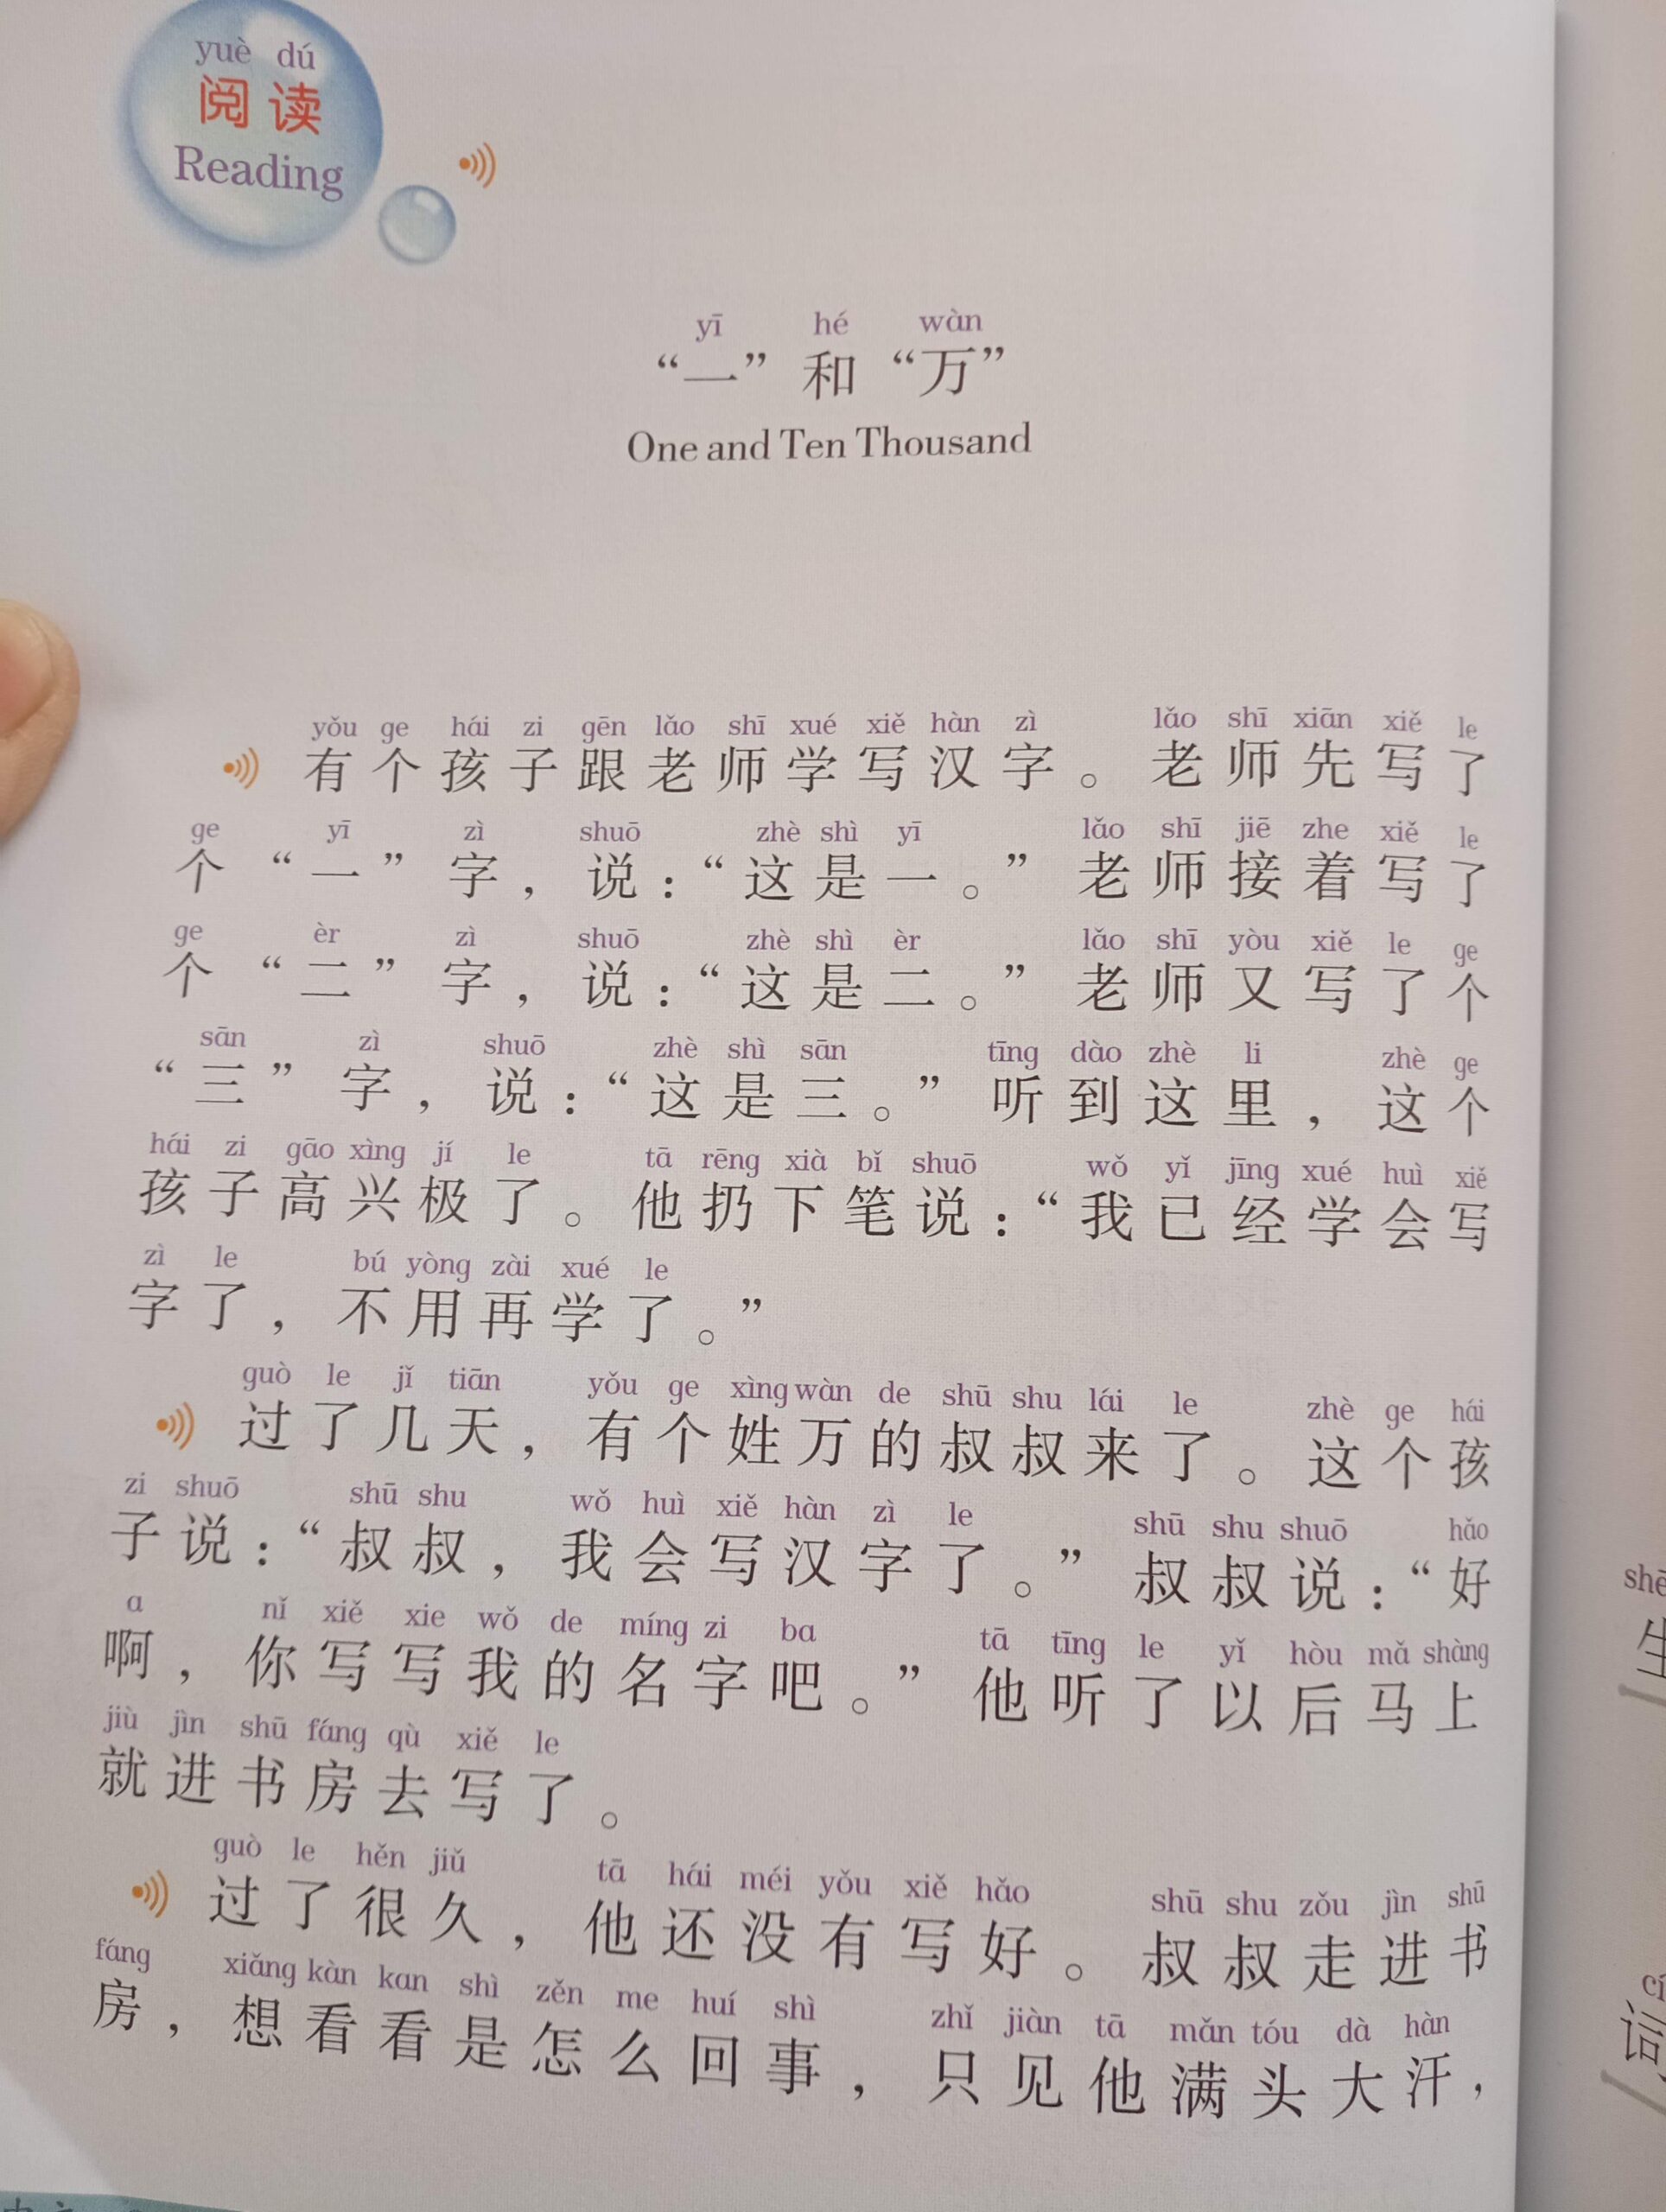 yuè dú
阅读
Reading
yī hé wàn
“一” 和 “万”
One and Ten Thousand
yǒu ge hái zi gēn lǎo shī xué xiě hàn zì lǎo shī xiān xiě le
有个孩子跟老师学写汉字。老师先写了
ge yī zì shuō zhè shì yī lǎo shī jiē zhe xiě le
个“一”字，说：“这是一。”老师接着写了
ge èr zì shuō zhè shì èr lǎo shī yòu xiě le ge
个“二”字，说：“这是二。”老师又写了个
sān zì shuō zhè shì sān tīng dào zhè li zhè ge
“三”字，说：“这是三。”听到这里，这个
hái zi gāo xìng jí le tā rēng xià bǐ shuō wǒ yǐ jīng xué huì xiě
孩子高兴极了。他扔下笔说：“我已经学会写
zì le bú yòng zài xué le
字了，不用再学了。”
guò le jǐ tiān yǒu ge xìng wàn de shū shu lái le zhè ge hái
过了几天，有个姓万的叔叔来了。这个孩
zi shuō shū shu wǒ huì xiě hàn zì le shū shu shuō hǎo
子说：“叔叔，我会写汉字了。”叔叔说：“好
a nǐ xiě xie wǒ de míng zi ba tā tīng le yǐ hòu mǎ shàng
啊，你写写我的名字吧。”他听了以后马上
jiù jìn shū fáng qù xiě le
就进书房去写了。
guò le hěn jiǔ tā hái méi yǒu xiě hǎo shū shu zǒu jìn shū
过了很久，他还没有写好。叔叔走进书
fáng xiǎng kàn kan shì zěn me huí shì zhǐ jiàn tā mǎn tóu dà hàn
房，想看看是怎么回事，只见他满头大汗，